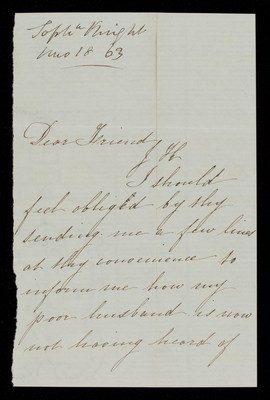 Sophia Knight
18 63
Dear Friend
J H
I should
feel obliged by thy
sending me a few lines
at thy convenience to
inform me how my
poor husband is now
not having heard of